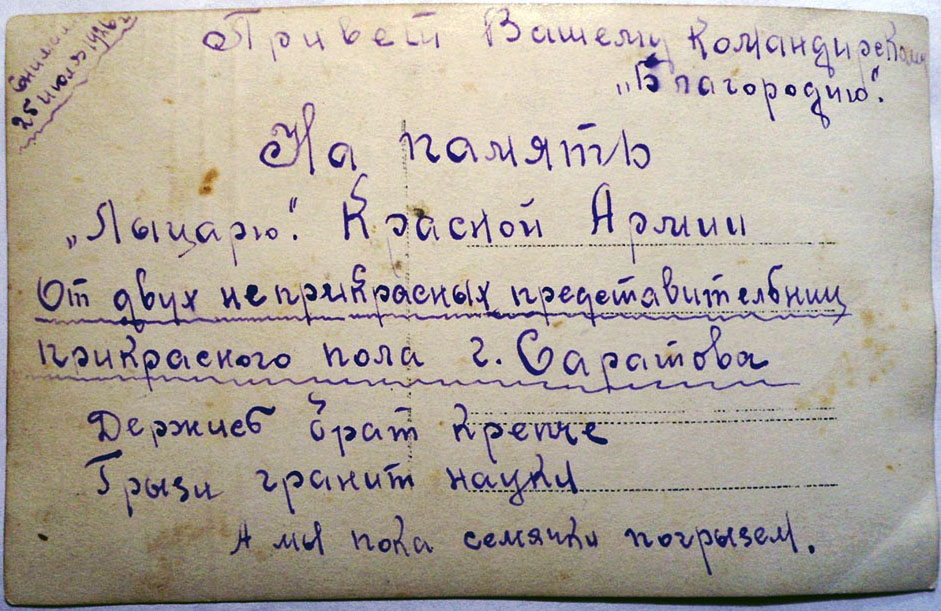 Снимались
25 июля 1926 г.
Привет Вашему Командирскому
„Благородию“.
На память
„Лыцарю“. Красной Армии
От двух неприкрасных представительниц
прикрасного пола г. Саратова
Держись брат крепче
Грызи гранит науки
А мы пока семячки погрызем.